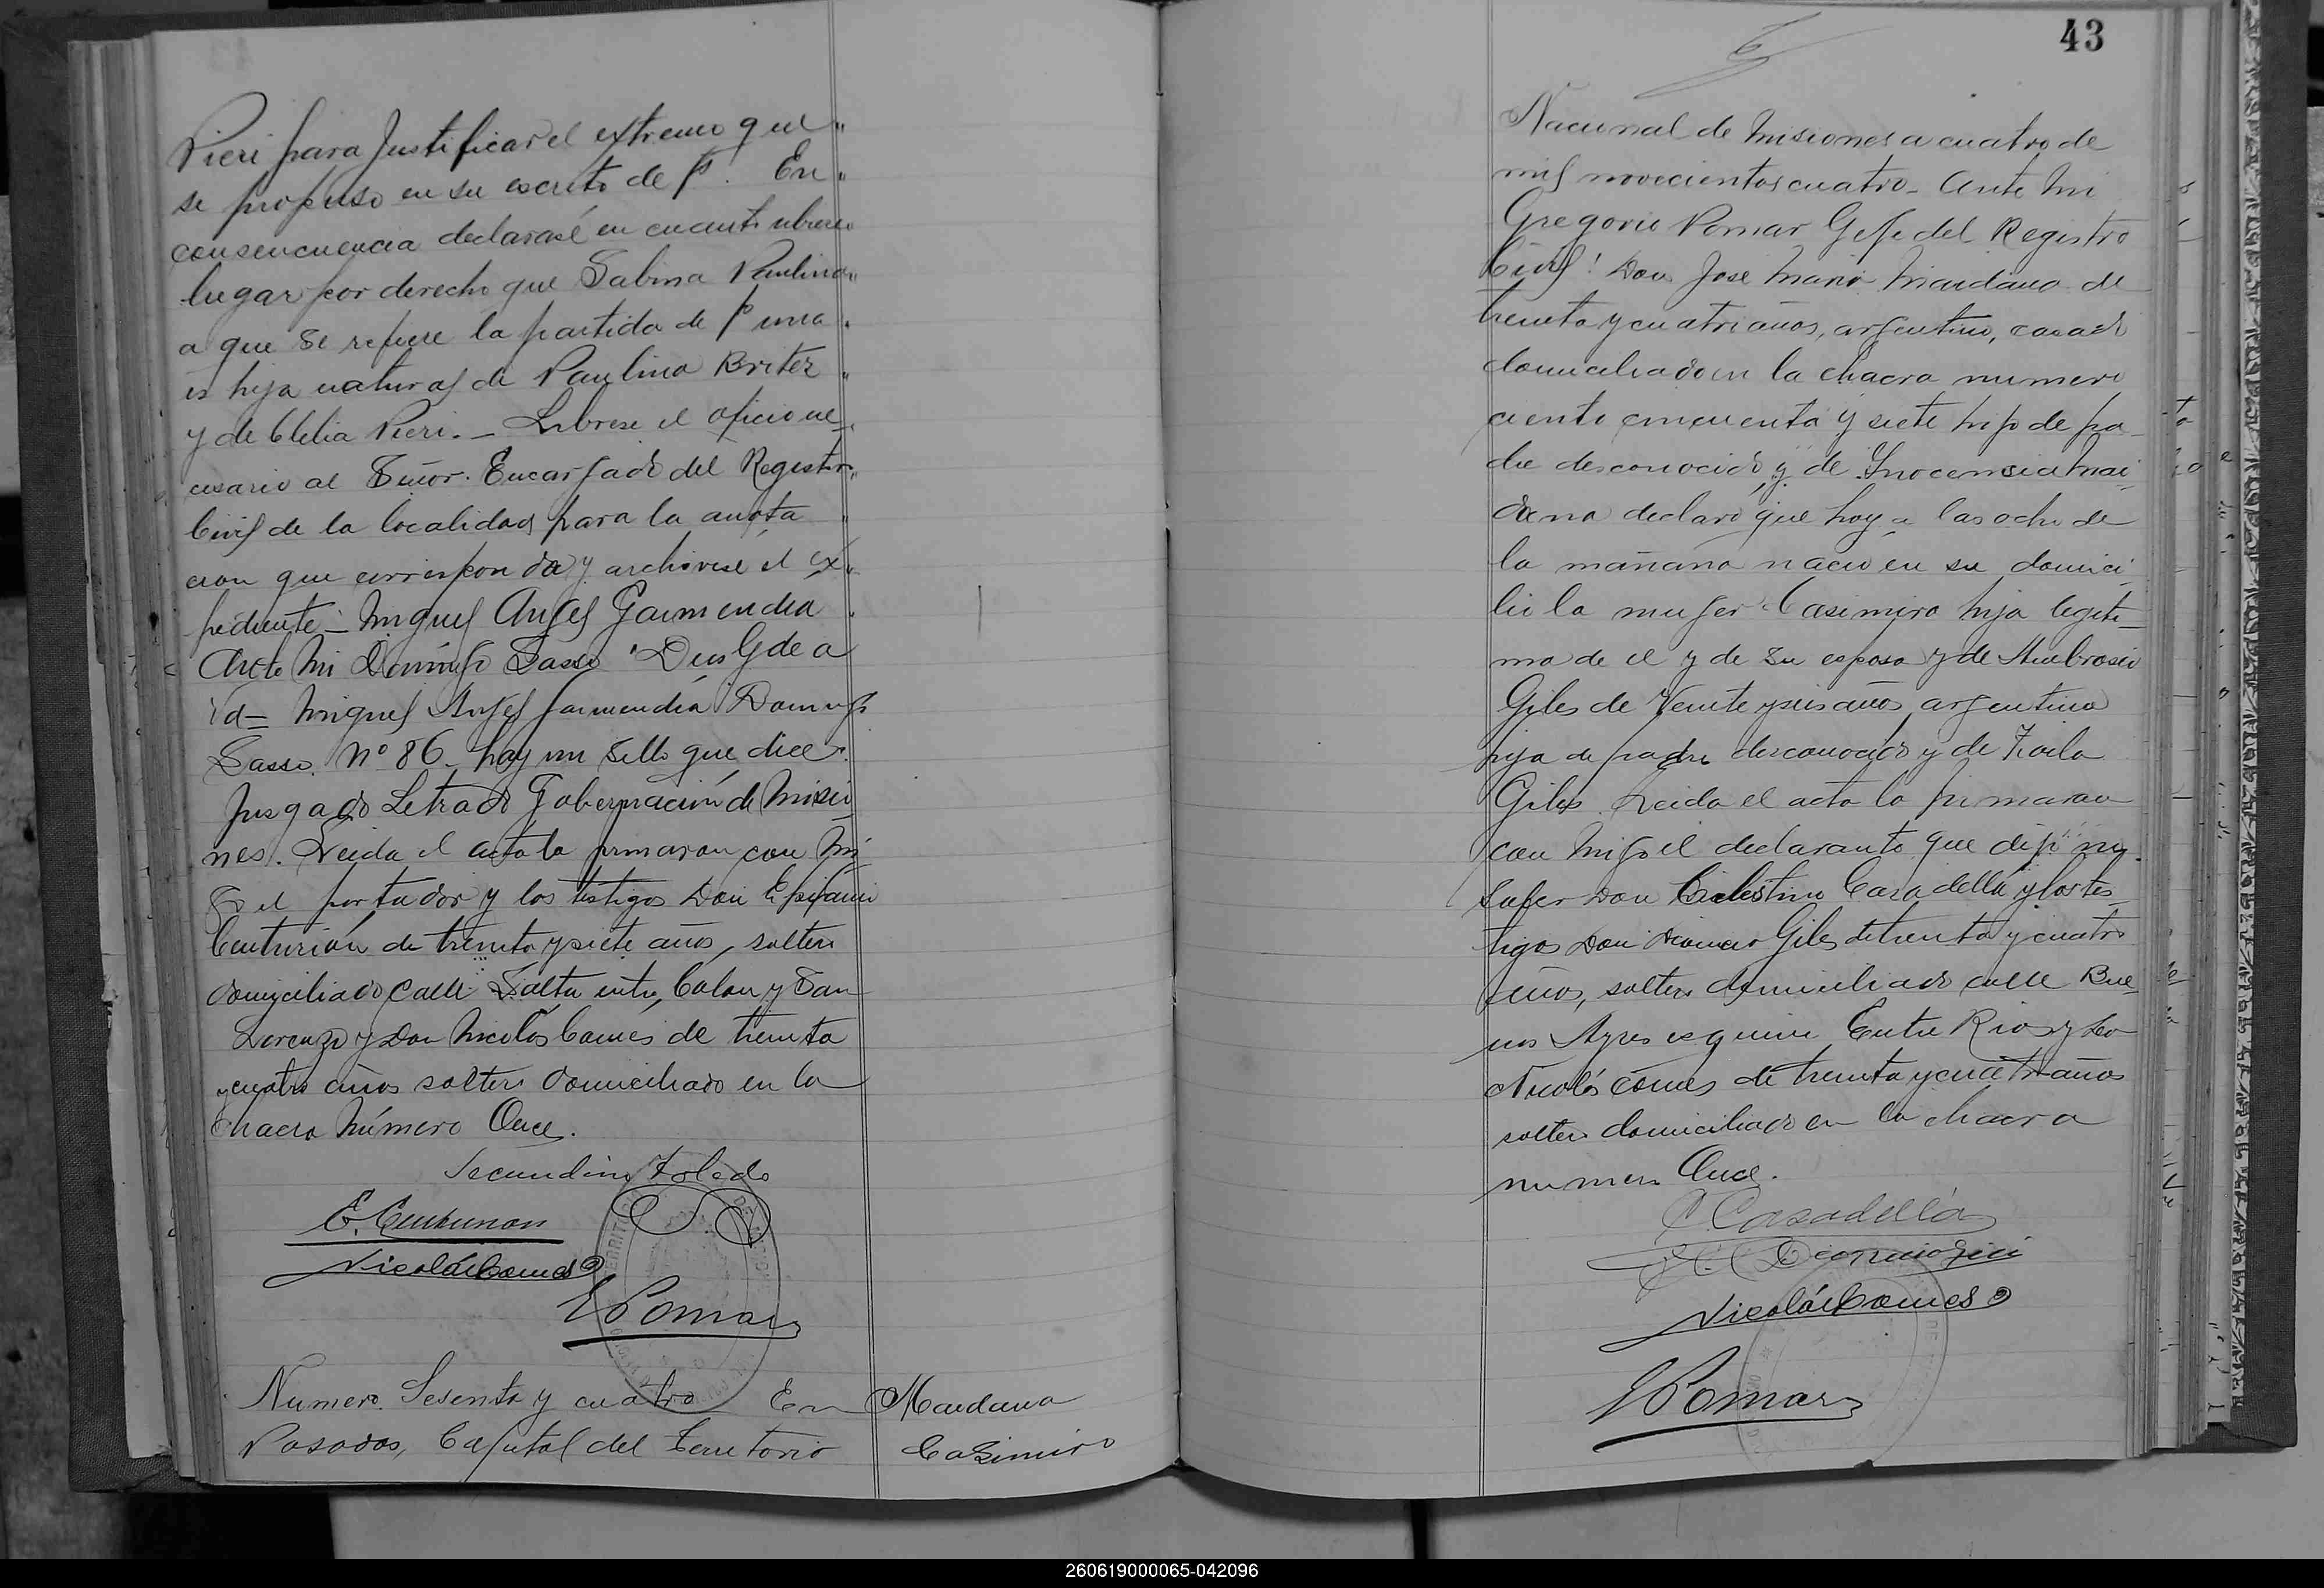 Pieri para Justificar el extremo que "
se propuso en su escrito de f. En "
consencuencia declarasé en cuanto ubiere
lugar por derecho que Sabina Paulina "
a que se refiere la partida de f una "
es hija natural de Paulino Britez "
y de Clelia Pieri. _ Librese el oficio ne_
cesario al Señor. Encargado del Registro "
Civil de la localidad para la anota "
cion que corresponda y archivese el ex "
pediente _ Miguel Angel Garmendia "
Ante Mi Domingo Sasso "Dios Gde a
Vd= Miguel Angel Garmendia Domingo
Sasso. Nº 86_ hay un sello que dice "
Jusgado Letrado Gobernación de Misio_
nes. Leida el acta la firmaron con mi_
go el portador y los testigos Don Epifanio
Centurión de treinta y siete años, soltero
domiciliado calle Salta entre Colon y San
Lorenzo y Don Nicolás Comes de treinta
y cuatro años soltero domiciliado en la
chacra Número Once.
Secundino Toledo
E. Centurion
Nicolás Comes
G Pomar
Numero. Sesenta y cuatro En
Posadas, Capital del Territorio
Maidana
Casimira
43
Nacional de Misiones a cuatro de
mil novecientos cuatro_ Ante Mi
Gregorio Pomar Gefe del Registro
Civil! Don Jose Maria Maidana de
treinta y cuatro años, argentino, casado
domiciliado en la chacra numero
ciento cincuenta y siete hijo de pa_
dre desconocido y de Inocencia Mai_
dana declaró que hoy a las ocho de
la mañana nacio en su domici_
lio la muger Casimira hija legiti_
ma de el y de su esposa y de Ambrosia
Giles de Veinte y seis años, argentina
hija de padre desconocido y de Zoila
Giles. Leida el acta la firmaron
con migo el declarante que dijo no
saber Don Celestino Casadellá y los tes_
tigos Don Dionicio Giles de treinta y cuatro
años, soltero domiciliado calle Bue_
nos Ayres esquina Entre Rios y Don
Nicolás Comes de treinta y cuatro años
soltero domiciliado en la chacra
numero Once.
C. Casadellá
Nicolás Comes
G Pomar
260619000065-042096